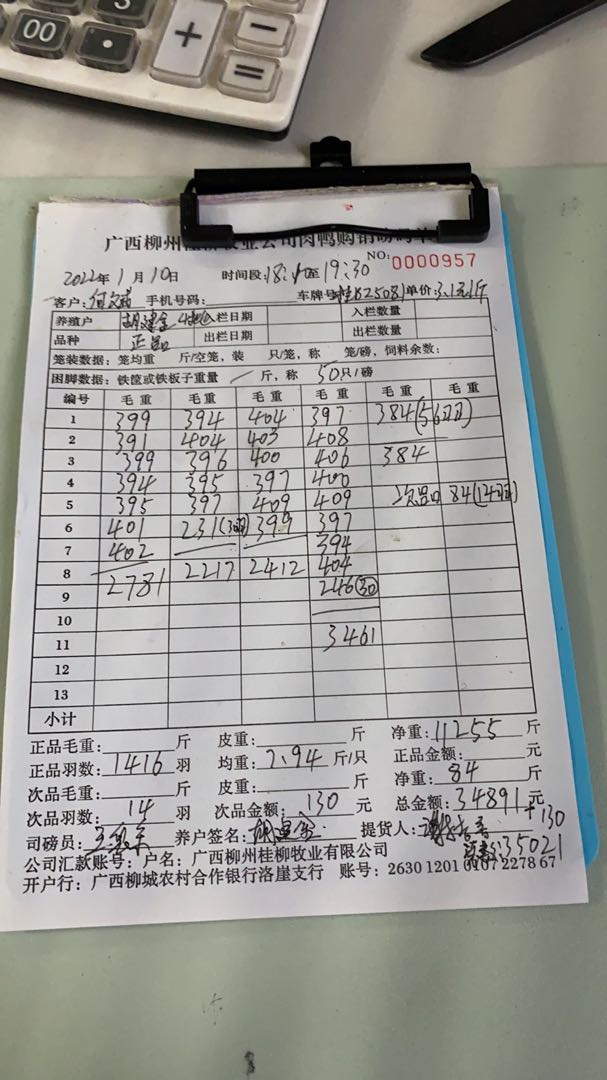 00 3 + −
· − =
广西柳州桂柳牧业公司肉鸭购销磅码单
NO: 0000957
2022年1月10日 时间段:18:10至19:30
客户: 手机号码: 车牌号桂B25081 单价:3.1元/斤
养殖户 胡建金 入栏日期 入栏数量
品种 正品 出栏日期 出栏数量
笼装数据: 笼均重 斤/空笼, 装 只/笼, 称 笼/磅, 饲料余数:
困脚数据: 铁筐或铁板子重量 / 斤, 称 50只/磅
编号 毛重 毛重 毛重 毛重 毛重 毛重
1 399 394 404 397 384(56羽)
2 391 404 403 408
3 399 396 400 406 384
4 394 395 397 400
5 395 397 409 409 次品 84(14羽)
6 401 231(30羽) 399 397
7 402 394
8 2781 2217 2412 404
9 246(30)
10
11 3461
12
13
小计
正品毛重: 斤 皮重: 斤 净重: 11255 斤
正品羽数: 1416 羽 均重: 7.94 斤/只 正品金额: 元
次品毛重: 斤 皮重: 斤 净重: 84 斤
次品羽数: 14 羽 次品金额: 130 元 总金额: 34891 元 +130
司磅员: 养户签名: 胡建金 提货人: 35021
公司汇款账号: 户名: 广西柳州桂柳牧业有限公司
开户行: 广西柳城农村合作银行洛崖支行 账号: 2630 1201 0107 2278 67